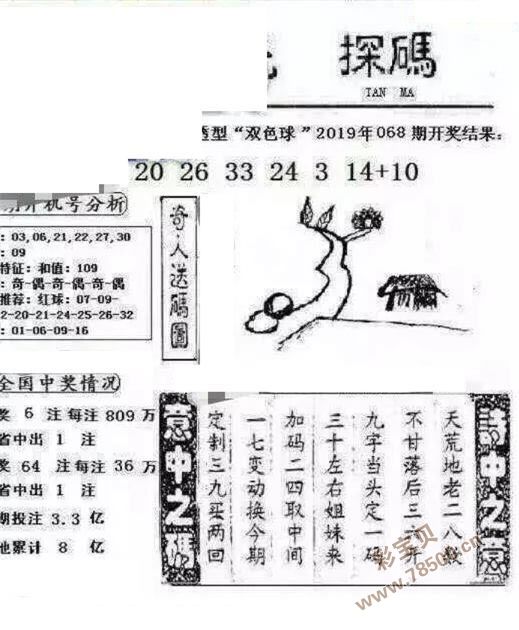 探碼
TAN MA
型“双色球”2019年068期开奖结果:
20 26 33 24 3 14+10
机号分析
: 03,06,21,22,27,30
: 09
特征: 和值: 109
: 奇-偶-奇-偶-奇-偶
推荐: 红球: 07-09-
2-20-21-24-25-26-32
: 01-06-09-16
奇人送碼圖
全国中奖情况
奖 6 注每注 809 万
省中出 1 注
奖 64 注每注 36 万
省中出 1 注
期投注 3.3 亿
池累计 8 亿
詩中之意
天荒地老二八数
不甘落后三六开
九字当头定一码
三十左右姐妹来
加码二四取中间
一七变动换今期
定制三九买两回
意中之碼
彩宝贝
www.78500.cn